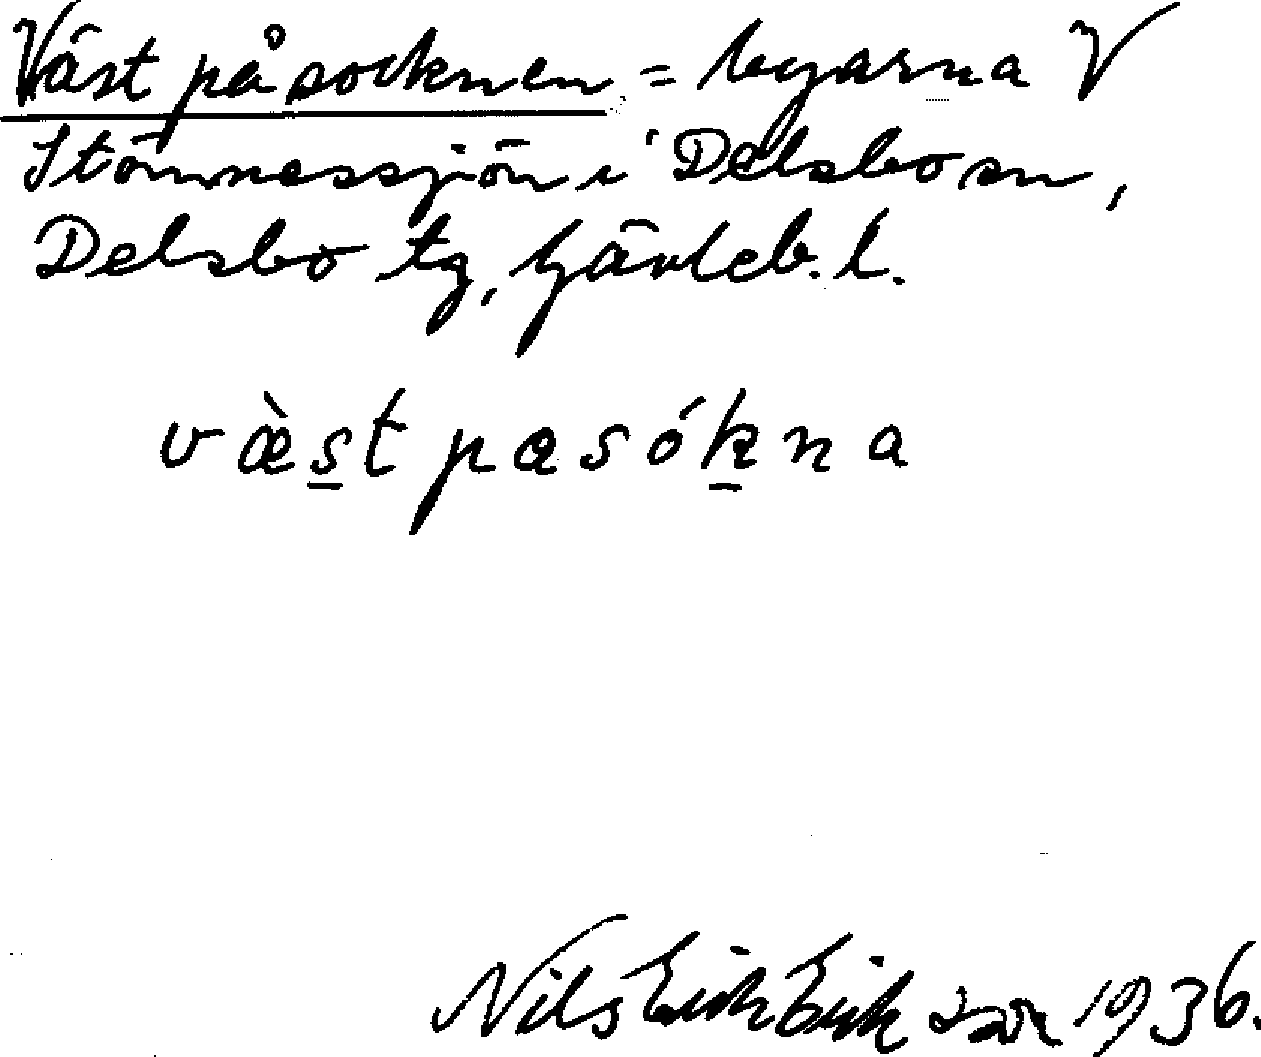 Väst på socknen = byarna V
Stömnessjön i Delsbo sn,
Delsbo tg, Gävleb. l.
væ̀s̲t pasók̲na
Nils Erik Eriksson 1936.